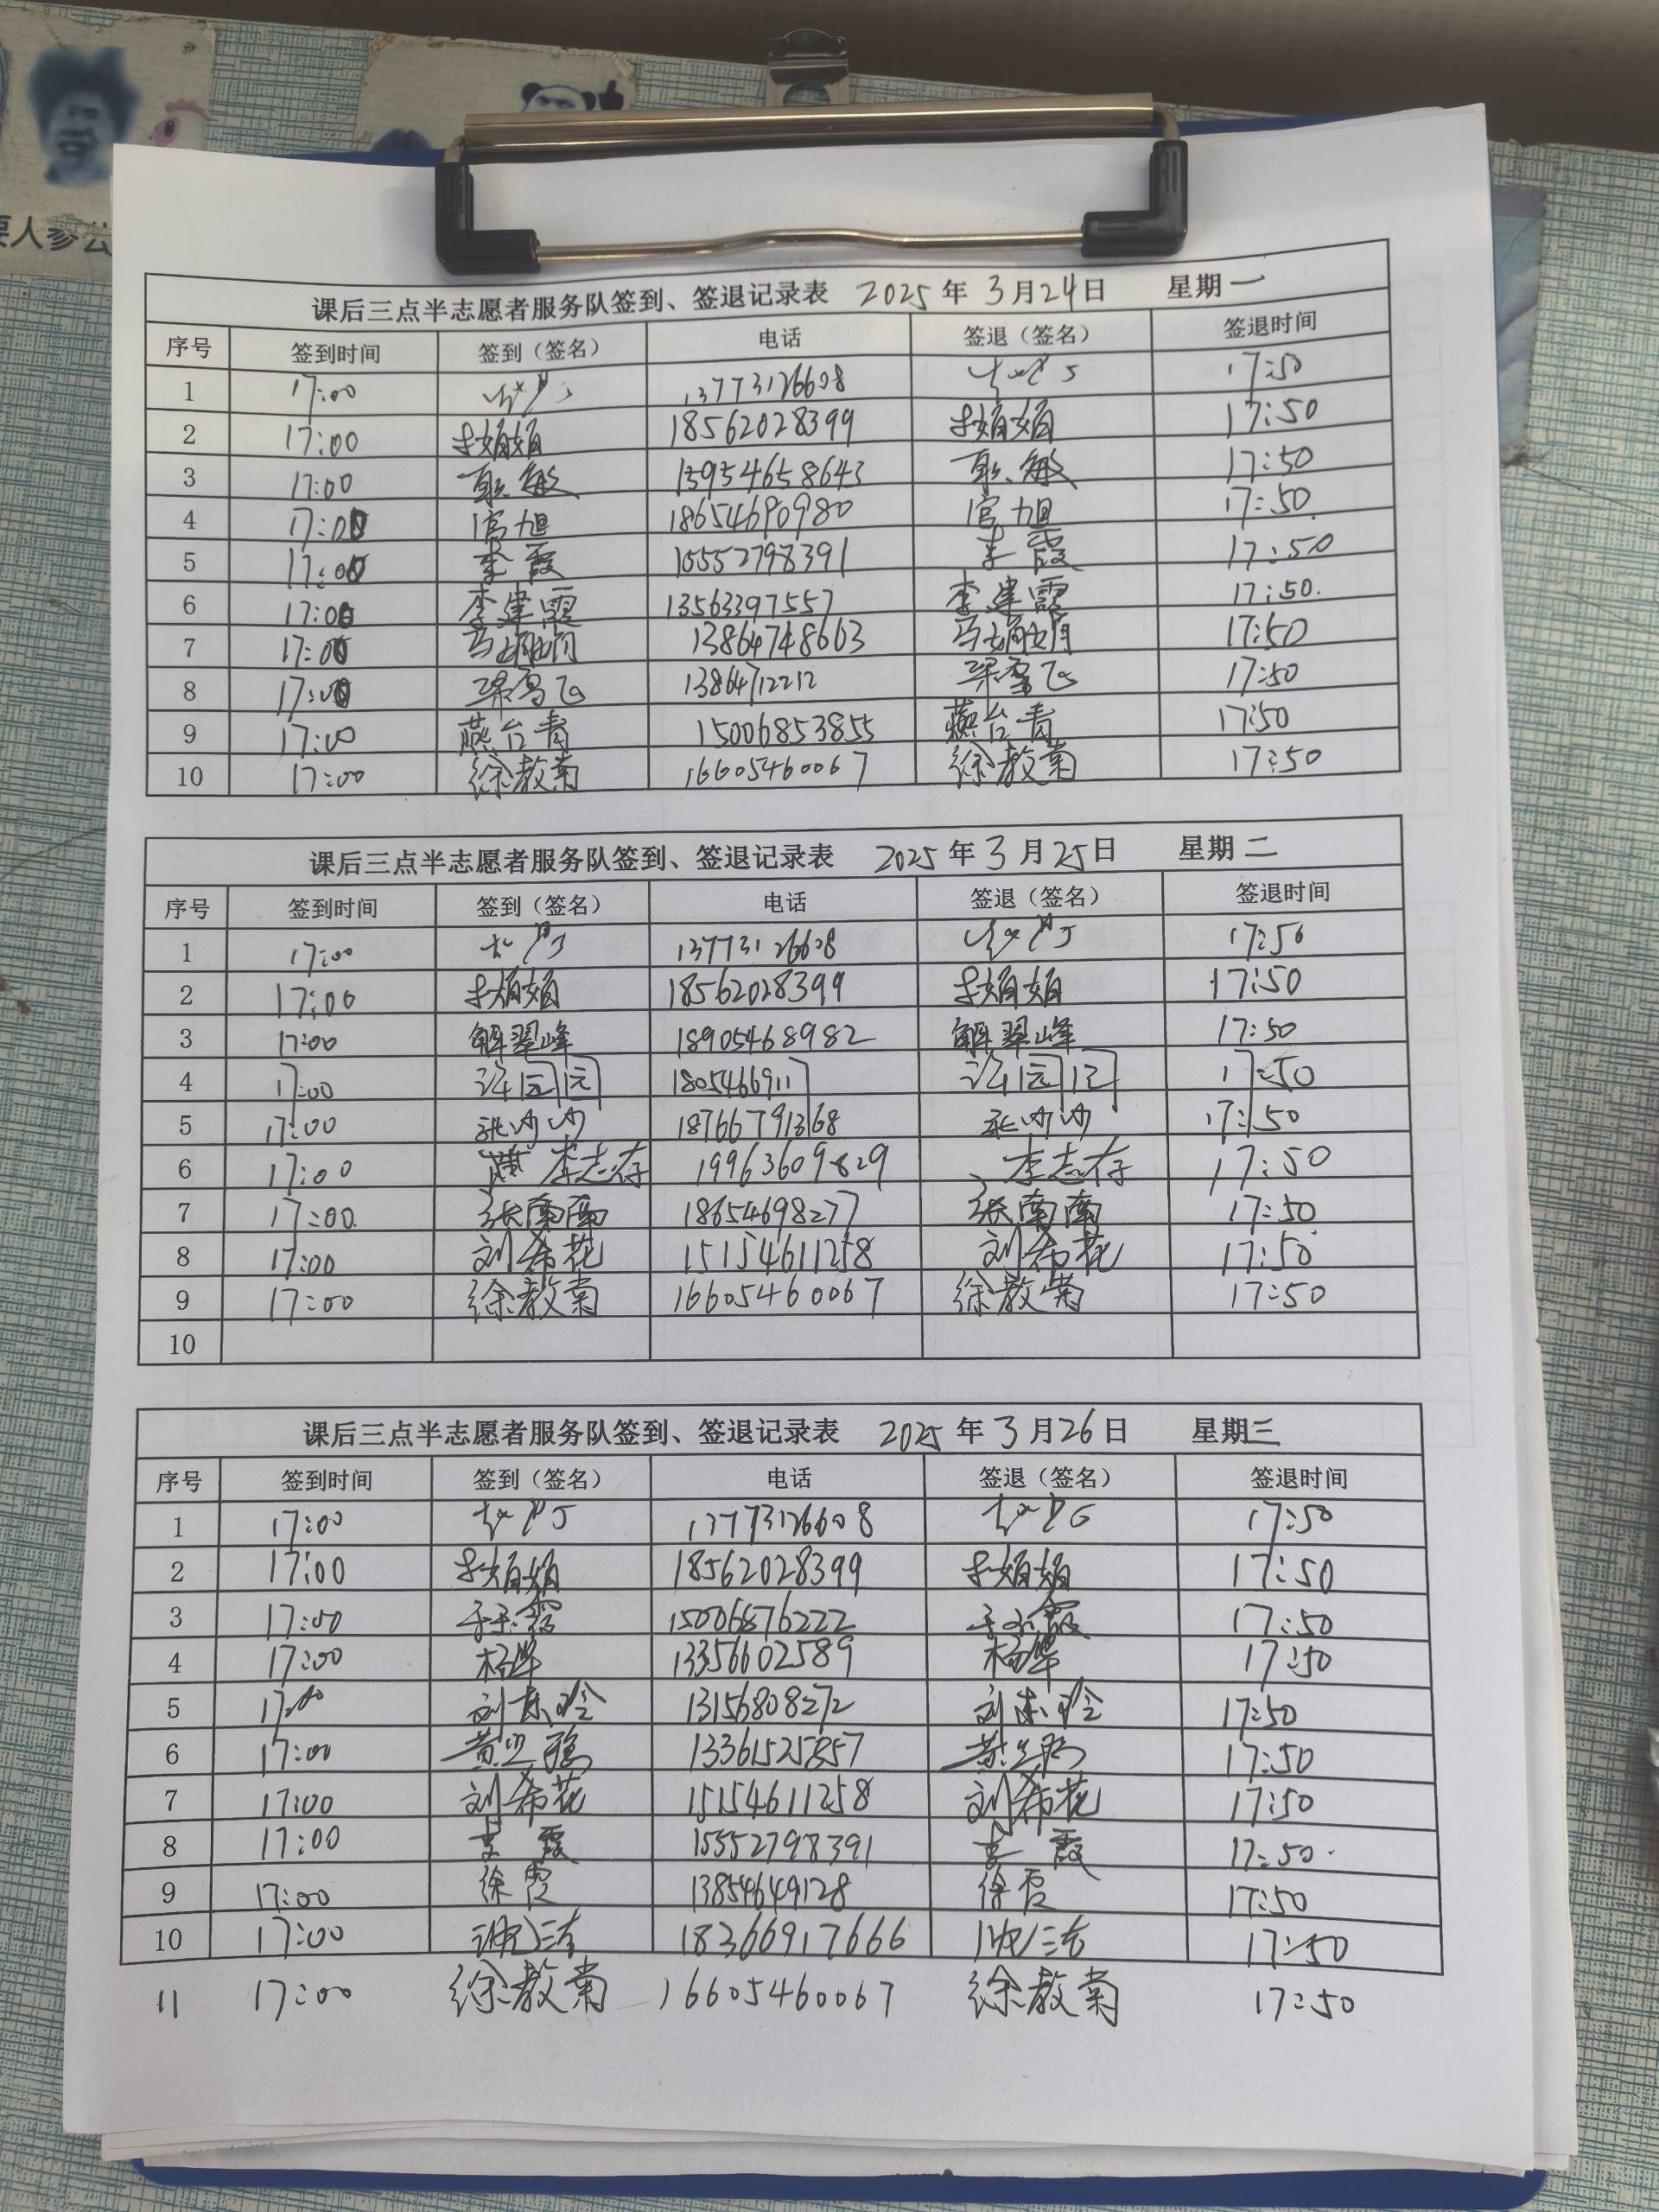 要人参公
课后三点半志愿者服务队签到、签退记录表 2025年3月24日 星期一
序号 签到时间 签到（签名） 电话 签退（签名） 签退时间
1 17:00 13773126608 17:50
2 17:00 18562028399 17:50
3 17:00 耿敏 13954658643 耿敏 17:50
4 17:00 官旭 18654690980 官旭 17:50
5 17:00 李霞 15552798391 李霞 17:50
6 17:00 李建霞 13563397557 李建霞 17:50.
7 17:00 马娟娟 13864748663 马娟娟 17:50
8 17:00 梁雪飞 13864712212 梁雪飞 17:50
9 17:00 燕台青 15006853855 燕台青 17:50
10 17:00 徐教菊 16605460067 徐教菊 17:50
课后三点半志愿者服务队签到、签退记录表 2025年3月25日 星期二
序号 签到时间 签到（签名） 电话 签退（签名） 签退时间
1 17:00 13773126608 17:50
2 17:00 18562028399 17:50
3 17:00 解翠峰 18905468982 解翠峰 17:50
4 17:00 许园园 1805466911 17:50
5 17:00 张沙沙 18766791368 张沙沙 17:50
6 17:00 李志存 19963609829 李志存 17:50
7 17:00. 张南南 18654698277 张南南 17:50
8 17:00 刘希花 15154611258 刘希花 17:50
9 17:00 徐教菊 16605460067 徐教菊 17:50
10
课后三点半志愿者服务队签到、签退记录表 2025年3月26日 星期三
序号 签到时间 签到（签名） 电话 签退（签名） 签退时间
1 17:00 13773126608 17:50
2 17:00 18562028399 17:50
3 17:00 15006876222 17:50
4 17:00 杨华 13356602589 杨华 17:50
5 17:00 刘东玲 13156808272 刘东玲 17:50
6 17:00 13361525857 17:50
7 17:00 刘希花 15154611258 刘希花 17:50
8 17:00 李霞 15552798391 李霞 17:50.
9 17:00 徐霞 13854649128 徐霞 17:50
10 17:00 18366917666 17:50
11 17:00 徐教菊 16605460067 徐教菊 17:50